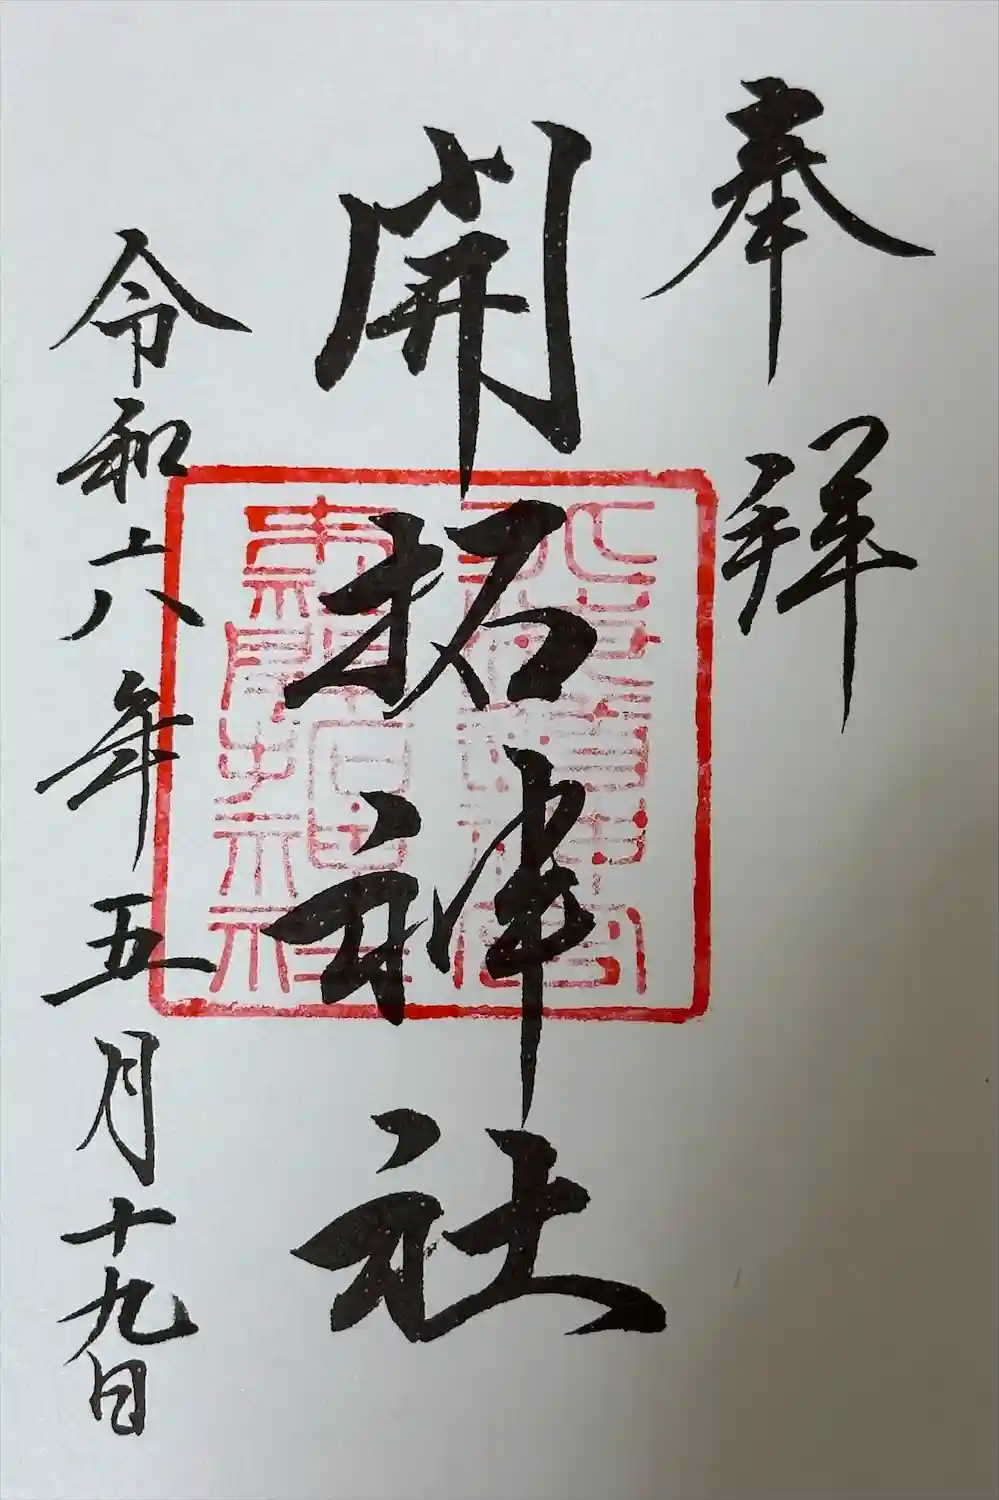 奉拝
開拓神社
令和六年五月十九日
北海道神宮
末社開拓神社